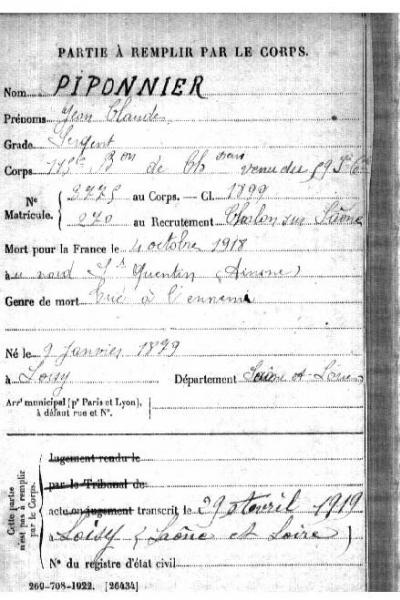 PARTIE À REMPLIR PAR LE CORPS.
Nom PIPONNIER
Prénoms Jean Claude
Grade Sergent
Corps Bon de Ch venu du
No Matricule. { au Corps. — Cl. 1899
270 au Recrutement Chalon sur Saône
Mort pour la France le 4 octobre 1918
au nord St Quentin (Aisne)
Genre de mort Tué à l'ennemi
Né le 9 Janvier 1879
à Loisy Département Saône et Loire
Arrt municipal (pr Paris et Lyon), à défaut rue et No.
Cette partie n'est pas à remplir par le Corps.
Jugement rendu le
par le Tribunal de
acte ou jugement transcrit le 29 Avril 1919
à Loisy (Saône et Loire)
No du registre d'état civil
260-708-1922. [26434]